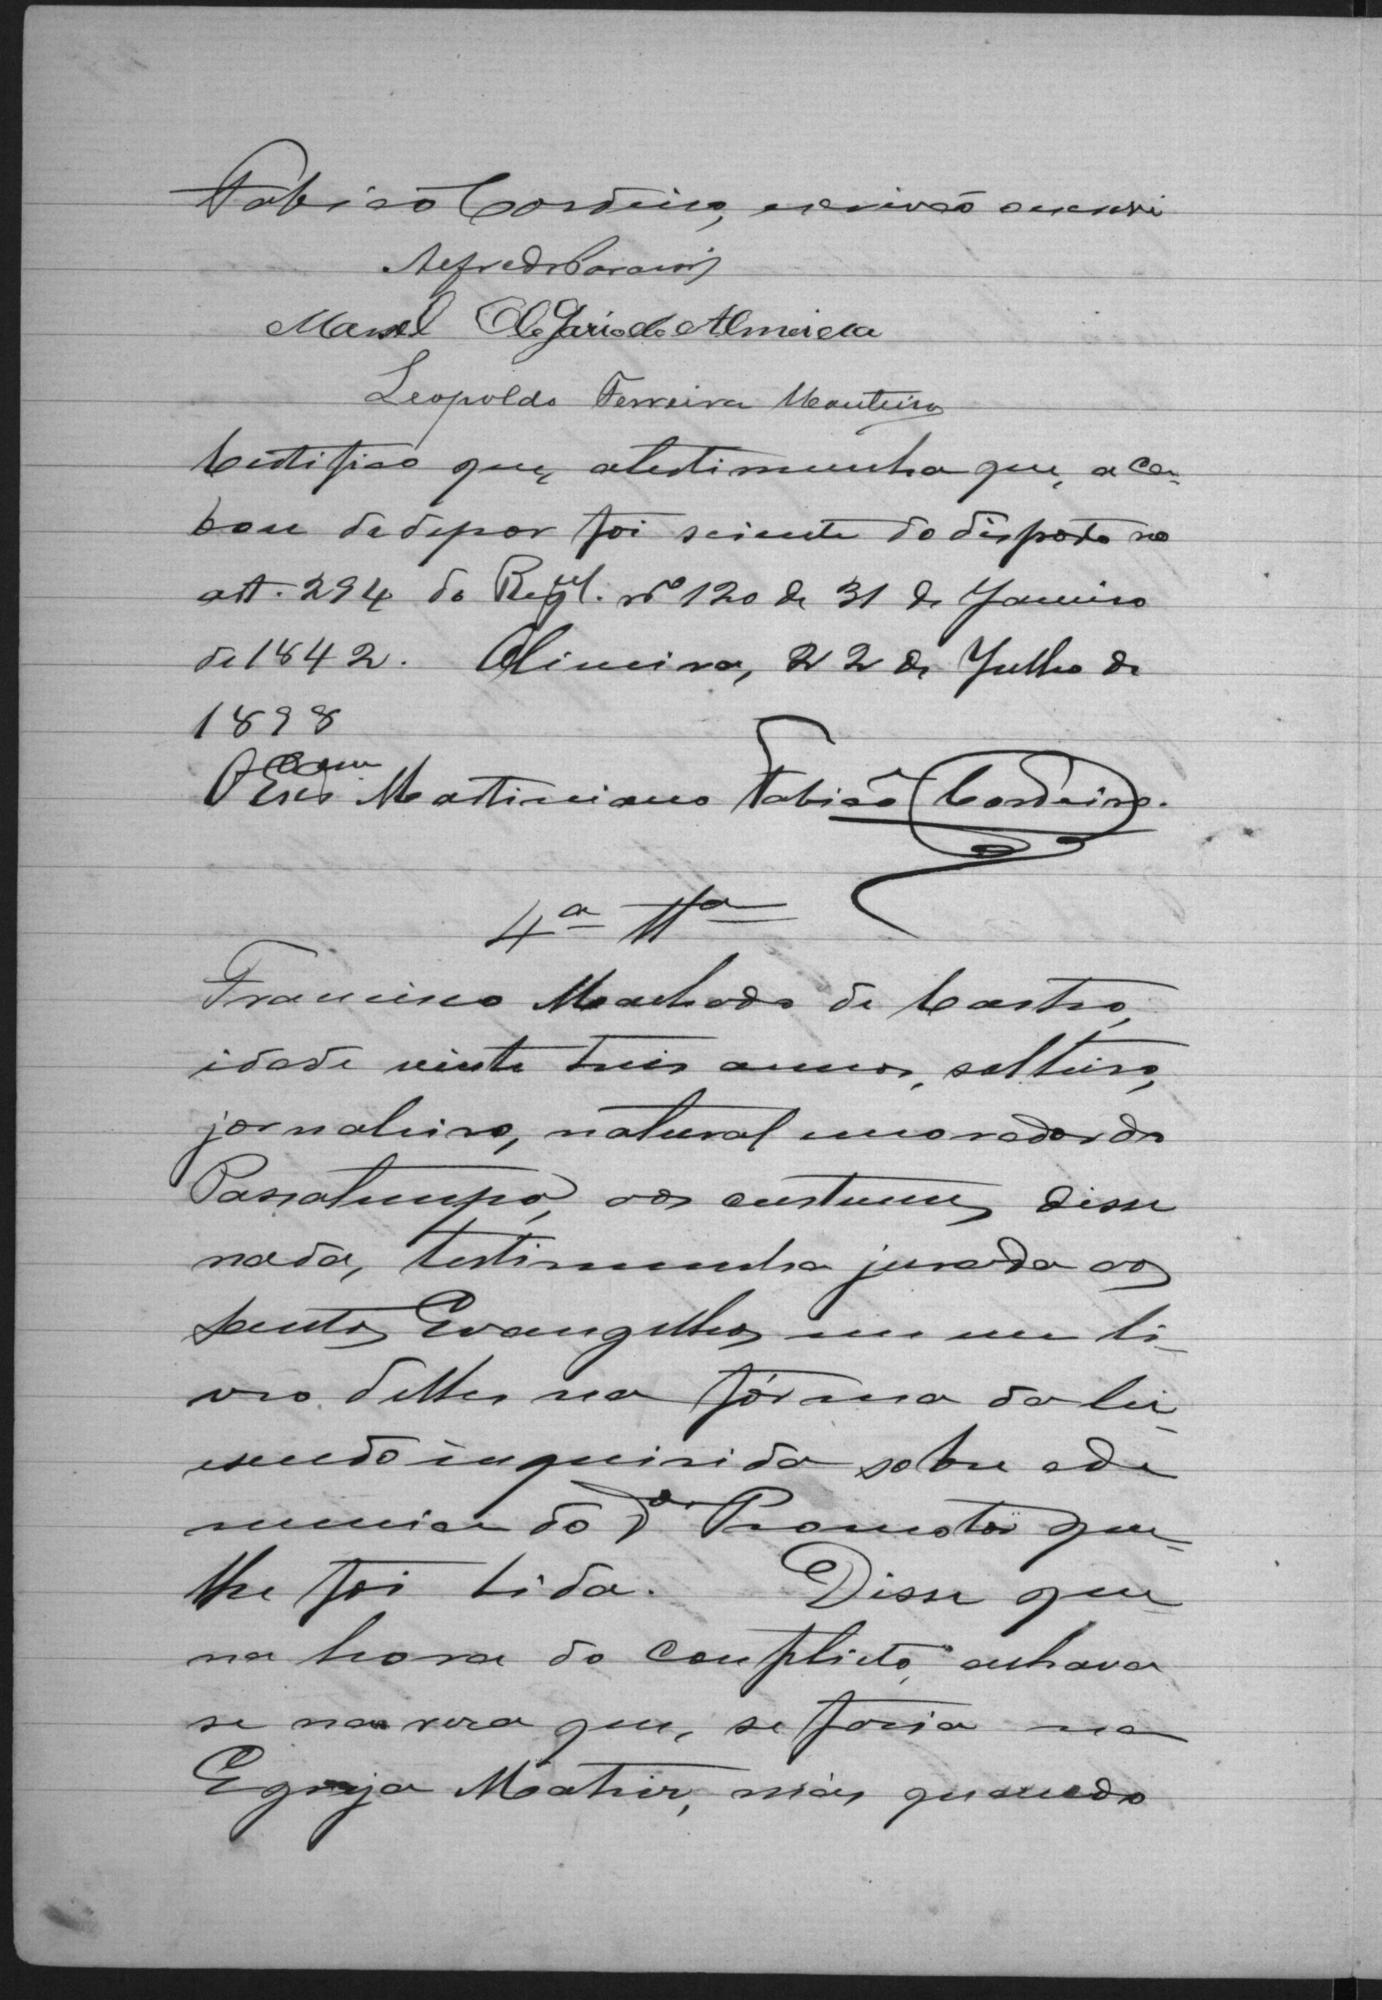 Fabião Cordeiro, escrivão o escrevi
Alfredo Paraiso
Manoel Olegario de Almeida
Leopoldo Ferreira Monteiro
Certifico que, a testimunha que, aca-
bou de depor foi sciente do disposto no
art. 294 do Regul. nº 120 de 31 de Janeiro
de 1842. Oliveira, 22 de Julho de
1898
O Escrm Martiniano Fabião Cordeiro.
4ª Tª
Francisco Machado de Castro,
idade vinte treis annos, solteiro,
jornaleiro, natural morador do
Passatempo, aos custumes disse
nada, testimunha jurada aos
Santos Evangelhos em um li-
vro delles na fórma da lei
e sendo inquirida sobre a de
nuncia do Dr. Promotor que-
lhe foi lida. Disse que
na hora do conflicto, achava
se na resa que, se fazia na
Egreja Matriz, más quando